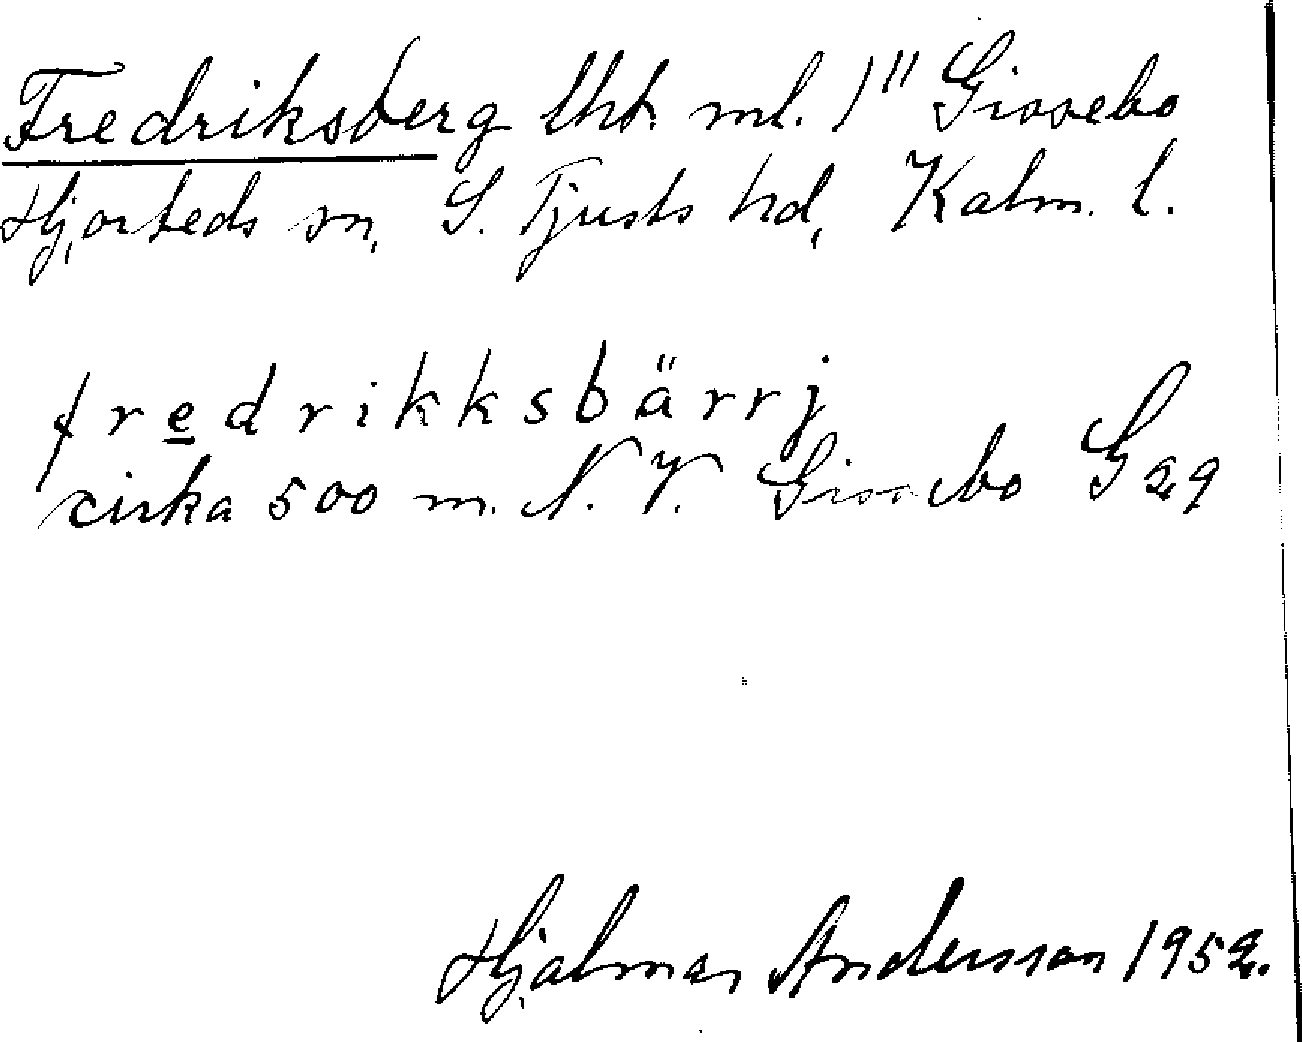 Fredriksberg lht. ml. 1" Gissebo
Hjorteds sn, S. Tjusts hd, Kalm. l.
fredrikksbärrj
cirka 500 m. N. V. Gissebo G 29
Hjalmar Andersson 1952.